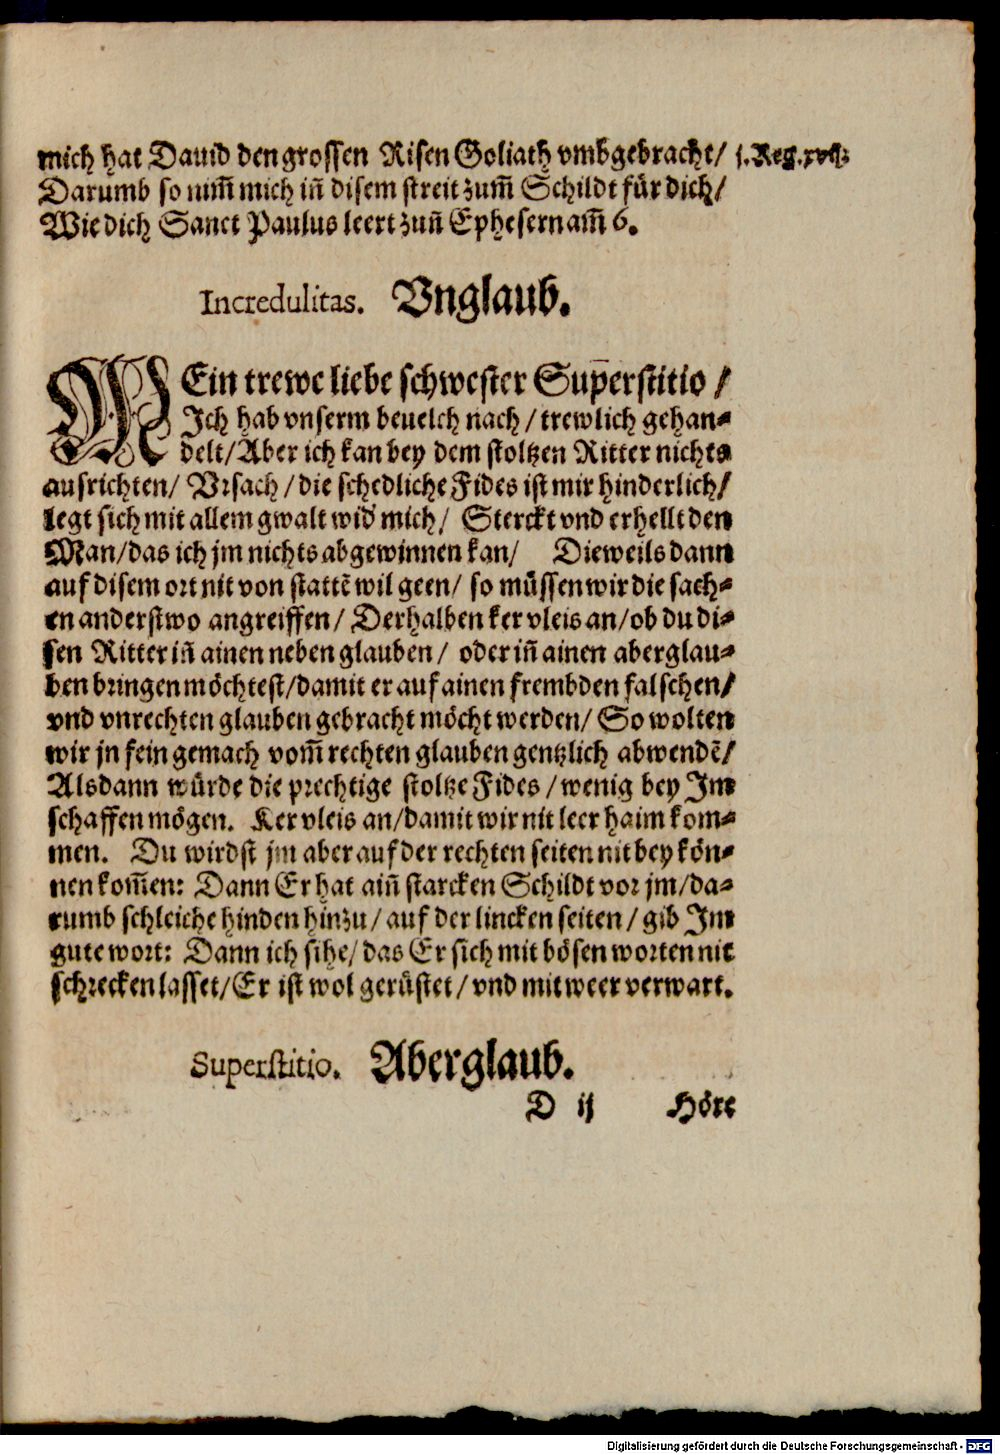 mich hat Dauid den grossen Risen Goliath vmbgebracht/ j. Reg. xvij.
Darumb so nim̅ mich in̅ disem streit zum̅ Schildt für dich/
Wie dich Sanct Paulus leert zun̅ Ephesern am̅ 6.
Incredulitas. Vnglaub.
MEin trewe liebe schwester Supe̅rstitio/
Ich hab vnserm beuelch nach/ trewlich gehan-
delt/ Aber ich kan bey dem stoltzen Ritter nichts
ausrichten/ Vrsach/ die schedliche Fides ist mir hinderlich/
legt sich mit allem gwalt wid' mich/ Sterckt vnd erhellt den
Man/ das ich jm nichts abgewinnen kan/ Dieweils dann
auf disem ort nit von stattē wil geen/ so müssen wir die sach-
en anderstwo angreiffen/ Derhalben ker vleis an/ ob du di-
sen Ritter in̅ ainen neben glauben/ oder in̅ ainen aberglau-
ben bringen möchtest/ damit er auf ainen frembden falschen/
vnd vnrechten glauben gebracht möcht werden/ So wolten
wir jn fein gemach vom̅ rechten glauben gentzlich abwendē/
Alsdann würde die prechtige stoltze Fides/ wenig bey Im
schaffen mögen. Ker vleis an/ damit wir nit leer haim kom-
men. Du wirdst jm aber auf der rechten seiten nit bey kön-
nen kom̅en: Dann Er hat ain̅ starcken Schildt vor jm/ da-
rumb schleiche hinden hinzu/ auf der lincken seiten/ gib Im
gute wort: Dann ich sihe/ das Er sich mit bösen worten nit
schrecken lasset/ Er ist wol gerüstet/ vnd mit weer verwart.
Superstitio. Aberglaub.
D ij Höre
Digitalisierung gefördert durch die Deutsche Forschungsgemeinschaft - DFG